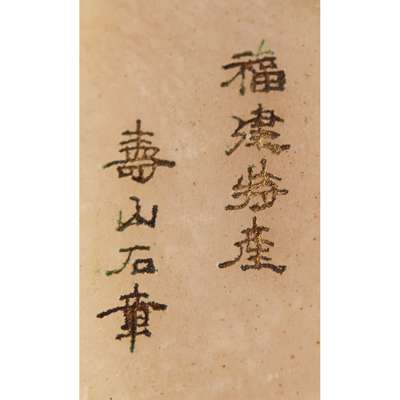 福建特產
壽山石章